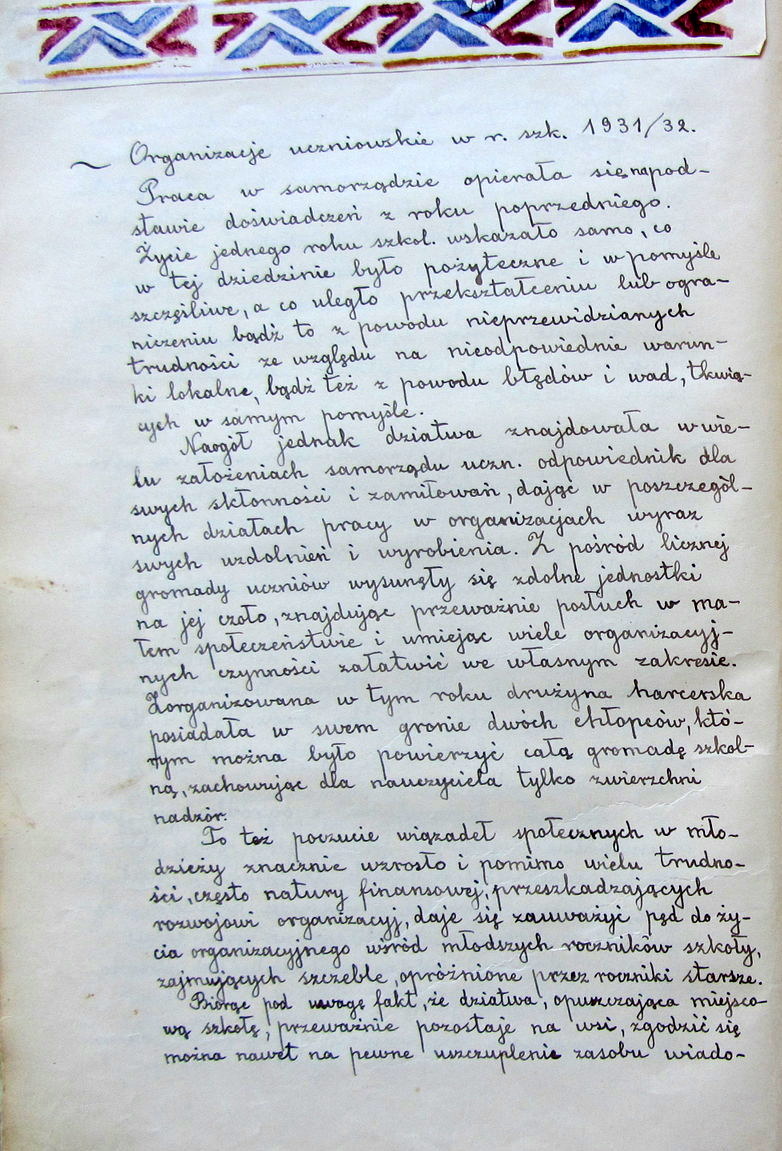 ~ Organizacje uczniowskie w r. szk. 1931/32.
Praca w samorządzie opierała się na pod-
stawie doświadczeń z roku poprzedniego.
Życie jednego roku szkol. wskazało samo, co
w tej dziedzinie było pożyteczne i w pomyśle
szczęśliwe, a co uległo przekształceniu lub ogra-
niczeniu bądź to z powodu nieprzewidzianych
trudności ze względu na nieodpowiednie warun-
ki lokalne, bądź też z powodu błędów i wad, tkwią-
cych w samym pomyśle.
Naogół jednak dziatwa znajdowała w wie-
lu założeniach samorządu uczn. odpowiednik dla
swych skłonności i zamiłowań, dając w poszczegól-
nych działach pracy w organizacjach wyraz
swych uzdolnień i wyrobienia. Z pośród licznej
gromady uczniów wysunęły się zdolne jednostki
na jej czoło, znajdując przeważnie posłuch w ma-
łem społeczeństwie i umiejąc wiele organizacyj-
nych czynności załatwić we własnym zakresie.
Zorganizowana w tym roku drużyna harcerska
posiadała w swem gronie dwóch chłopców, któ-
rym można było powierzyć całą gromadę szkol-
ną, zachowując dla nauczyciela tylko zwierzchni
nadzór.
To też poczucie wiązadeł społecznych w mło-
dzieży znacznie wzrosło i pomimo wielu trudno-
ści, często natury finansowej, przeszkadzających
rozwojowi organizacyj, daje się zauważyć pęd do ży-
cia organizacyjnego wśród młodszych roczników szkoły,
zajmujących szczeble, opróżnione przez roczniki starsze.
Biorąc pod uwagę fakt, że dziatwa, opuszczająca miejsco-
wą szkołę, przeważnie pozostaje na wsi, zgodzić się
można nawet na pewne uszczuplenie zasobu wiado-